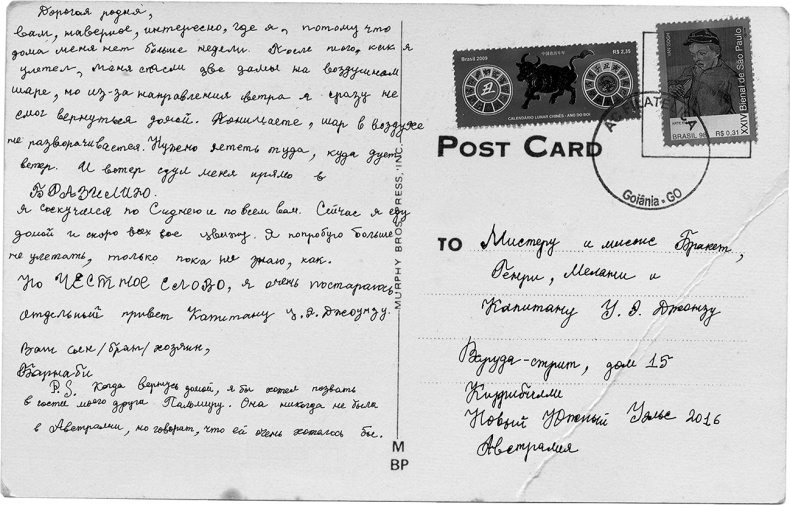 Дорогая родня,
вам, наверное, интересно, где я, потому что
дома меня нет больше недели. После того, как я
улетел, меня спасли две дамы на воздушном
шаре, но из-за направления ветра я сразу не
смог вернуться домой. Понимаете, шар в воздухе
не разворачивается. Нужно лететь туда, куда дует
ветер. И ветер сдул меня прямо в
БРАЗИЛИЮ.
Я соскучился по Сиднею и по всем вам. Сейчас я еду
домой и скоро всех вас увижу. Я попробую больше
не улетать, только пока не знаю, как.
Но ЧЕСТНОЕ СЛОВО, я очень постараюсь
Отдельный привет Капитану У.Э. Джоунзу.
Ваш сын/брат/хозяин,
Барнаби
P.S. Когда вернусь домой, я бы хотел позвать
в гости моего друга Пальмиру. Она никогда не была
в Австралии, но говорят, что ей очень хотелось бы.
MURPHY BROS. PRESS, INC.
M
BP
Brasil 2009
中国農历牛年
R$ 2,35
CALENDÁRIO LUNAR CHINÊS - ANO DO BOI
XXIV Bienal de São Paulo
BRASIL 98 R$ 0,31
Goiânia - GO
POST CARD
TO
Мистеру и миссис Бракет,
Генри, Мелани и
Капитану У. Э. Джоунзу
Вруда-стрит, дом 15
Киррибилли
Новый Южный Уэльс 2016
Австралия